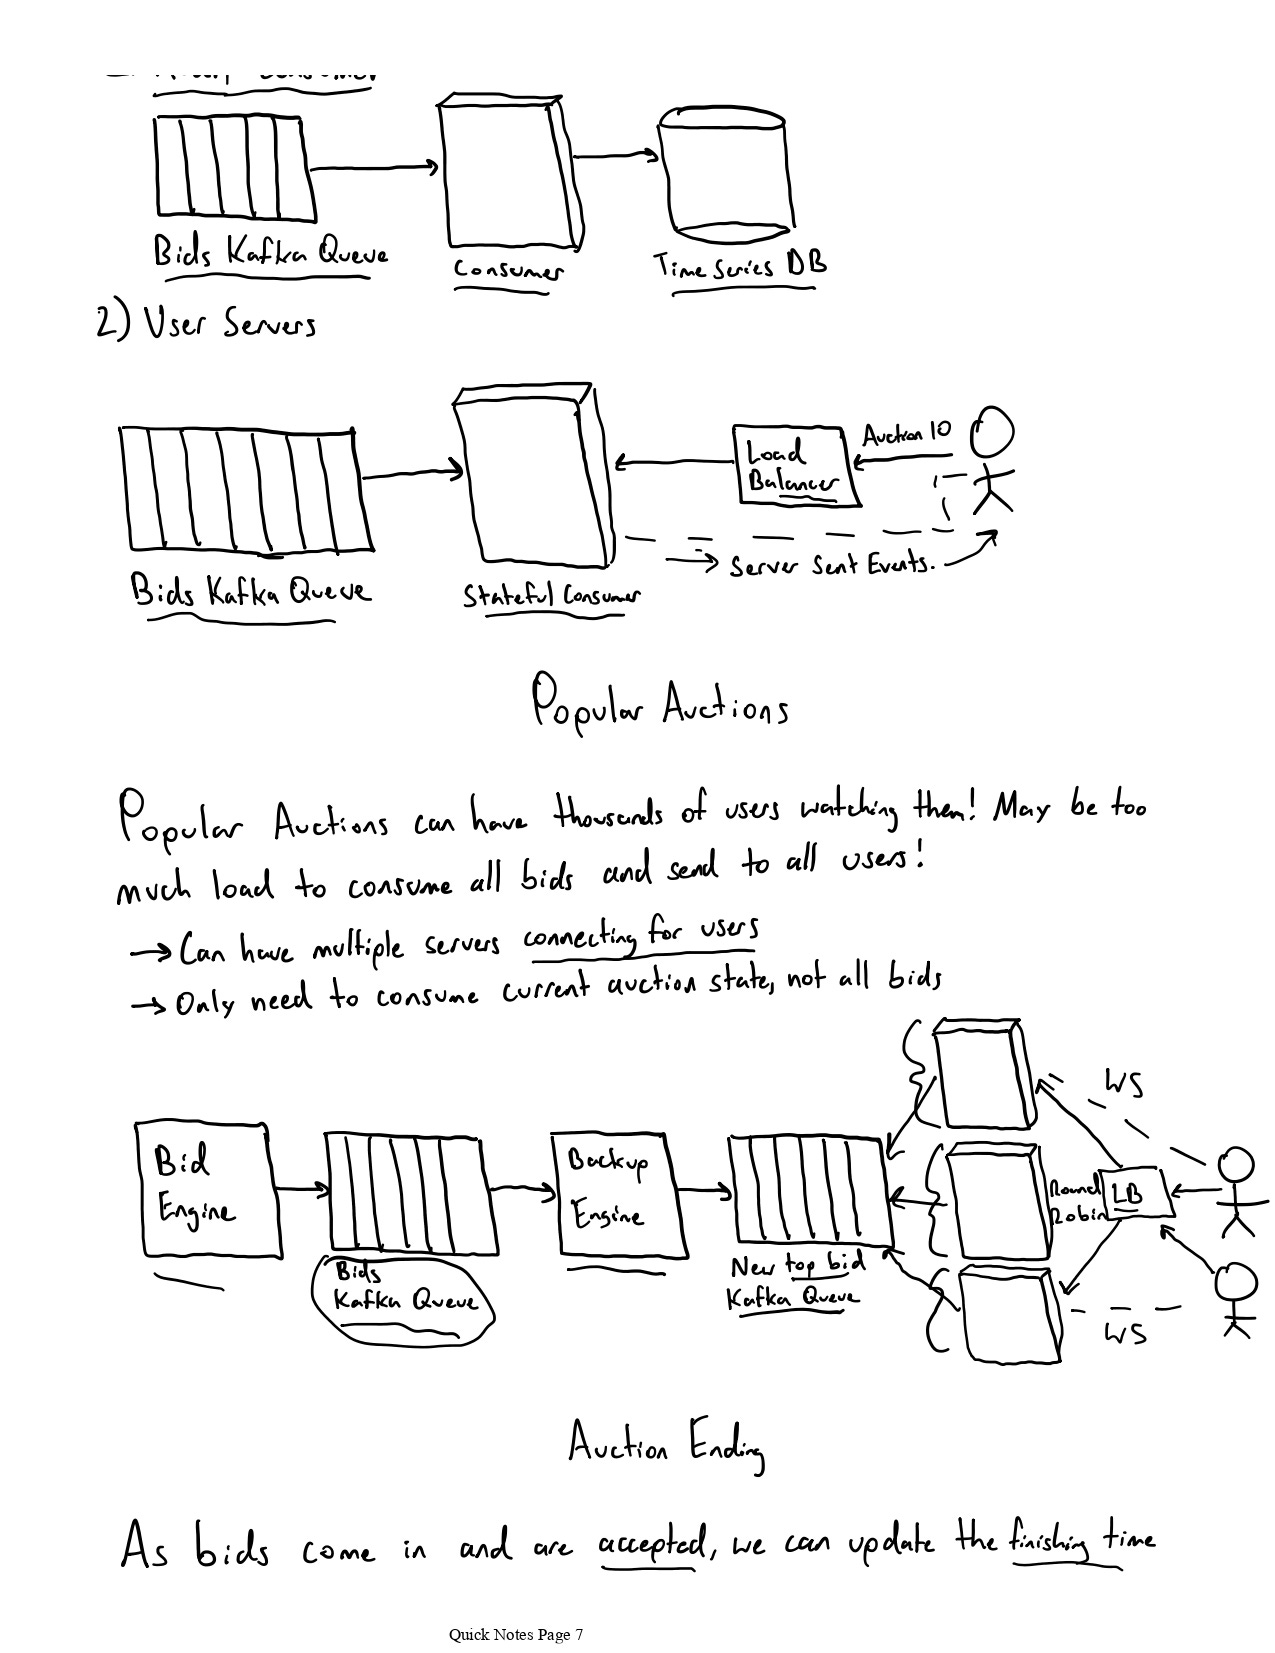 Consumer
Bids Kafka Queue
Consumer
Time Series DB
2) User Servers
Load
Balancer
Auction 10
Server Sent Events.
Bids Kafka Queue
Stateful Consumer
Popular Auctions
Popular Auctions can have thousands of users watching them! May be too
much load to consume all bids and send to all users!
→ Can have multiple servers connecting for users
→ Only need to consume current auction state, not all bids
Bid
Engine
Bids
Kafka Queue
Backup
Engine
New top bid
Kafka Queue
Round
Robin
LB
WS
WS
Auction Ending
As bids come in and are accepted, we can update the finishing time
Quick Notes Page 7